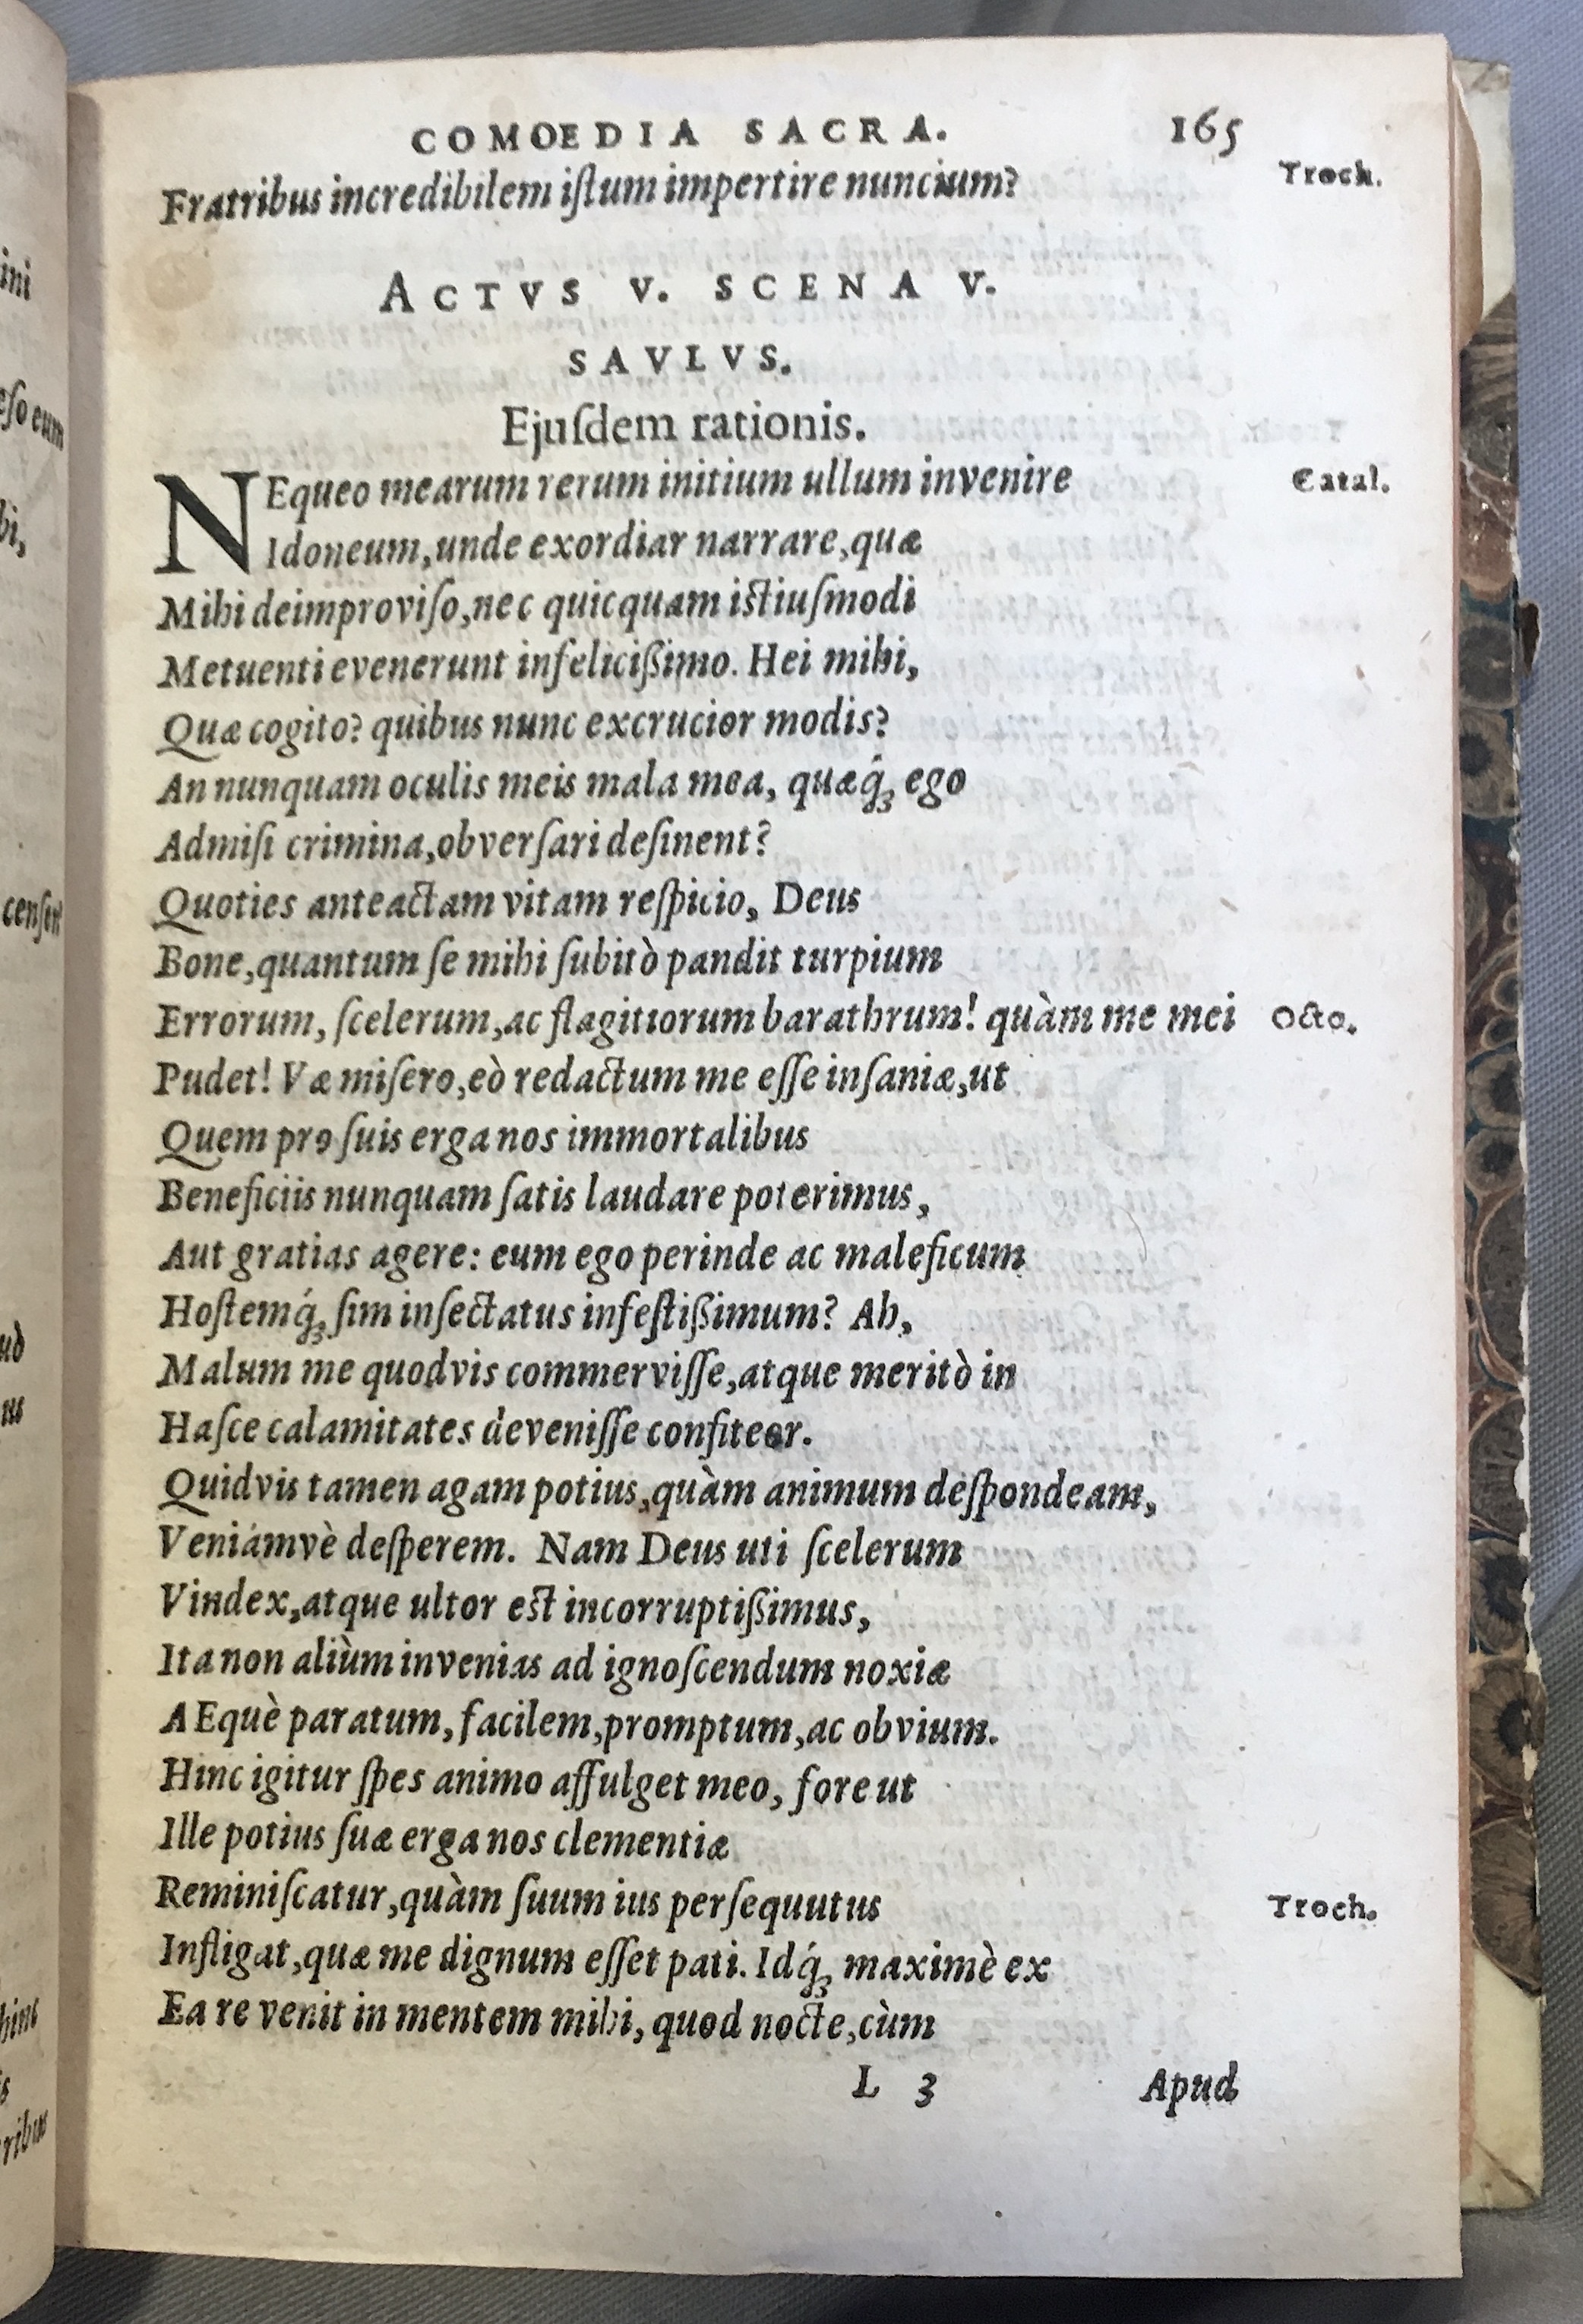 COMOEDIA SACRA. 165
Fratribus incredibilem iſtum impertire nuncium? Troch.
ACTVS V. SCENA V.
SAVLVS.
Ejuſdem rationis.
NEqueo mearum rerum initium ullum invenire Catal.
Idoneum, unde exordiar narrare, quæ
Mihi deimproviſo, nec quicquam istiuſmodi
Metuenti evenerunt infelicißimo. Hei mihi,
Quæ cogito? quibus nunc excrucior modis?
An nunquam oculis meis mala mea, quæq́ꝫ ego
Admiſi crimina, obverſari deſinent?
Quoties anteactam vitam reſpicio, Deus
Bone, quantum ſe mihi ſubitò pandit turpium
Errorum, ſcelerum, ac flagitiorum barathrum! quàm me mei Octo.
Pudet! Væ miſero, eò redactum me eſſe inſaniæ, ut
Quem pro ſuis erga nos immortalibus
Beneficiis nunquam ſatis laudare poterimus,
Aut gratias agere: eum ego perinde ac maleficum
Hoſtemq́ꝫ ſim inſectatus infeſtißimum? Ah,
Malum me quodvis commerviſſe, atque meritò in
Haſce calamitates deveniſſe confiteor.
Quidvis tamen agam potius, quàm animum deſpondeam,
Veniámvè deſperem. Nam Deus uti ſcelerum
Vindex, atque ultor est incorruptißimus,
Ita non aliùm invenias ad ignoſcendum noxiæ
AEquè paratum, facilem, promptum, ac obvium.
Hinc igitur ſpes animo affulget meo, fore ut
Ille potius ſuæ erga nos clementiæ
Reminiſcatur, quàm ſuum ius perſequutus Troch.
Infligat, quæ me dignum eſſet pati. Idq́ꝫ maximè ex
Ea re venit in mentem mihi, quod nocte, cùm
L 3 Apud